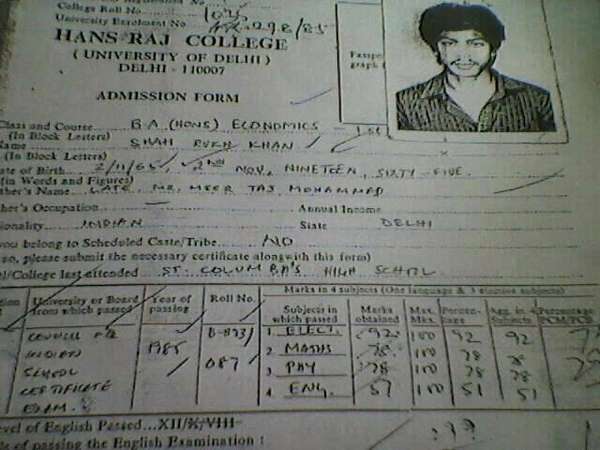 College Roll No.
University Enrolment No 298/85
HANS RAJ COLLEGE
( UNIVERSITY OF DELHI )
DELHI - 110007
ADMISSION FORM
Class and Course B.A (HONS) ECONOMICS
(In Block Letters)
Name SHAH RUKH KHAN
(In Block Letters)
ate of Birth 2/11/65, 2ND NOV, NINETEEN, SIXTY-FIVE.
(in Words and Figures)
ther's Name LATE MR. MEER TAJ MOHAMMED
ther's Occupation Annual Income
ionality INDIAN State DELHI
you belong to Scheduled Caste/Tribe NO
so, please submit the necessary certificate alongwith this form)
l/College last attended ST. COLUMBA'S HIGH SCHOOL
University or Board from which passed Year of passing Roll No. Marks in 4 subjects (One language & 3 elective subjects)
Subjects in which passed Marks obtained Max. Mks. Percen- tage Agg. in 4 Subjects Percentage PCM/PCB
COUNCIL INDIAN SCHOOL CERTIFICATE EXAM. 1985 B-873/ 087
1. ELECT. 92 100 92 92
2 MATHS 78 100 78 78
3 PHY 78 100 78 78
4 ENG. 51 100 51 51
evel of English Passed...XII/X/VIII
of passing the English Examination :